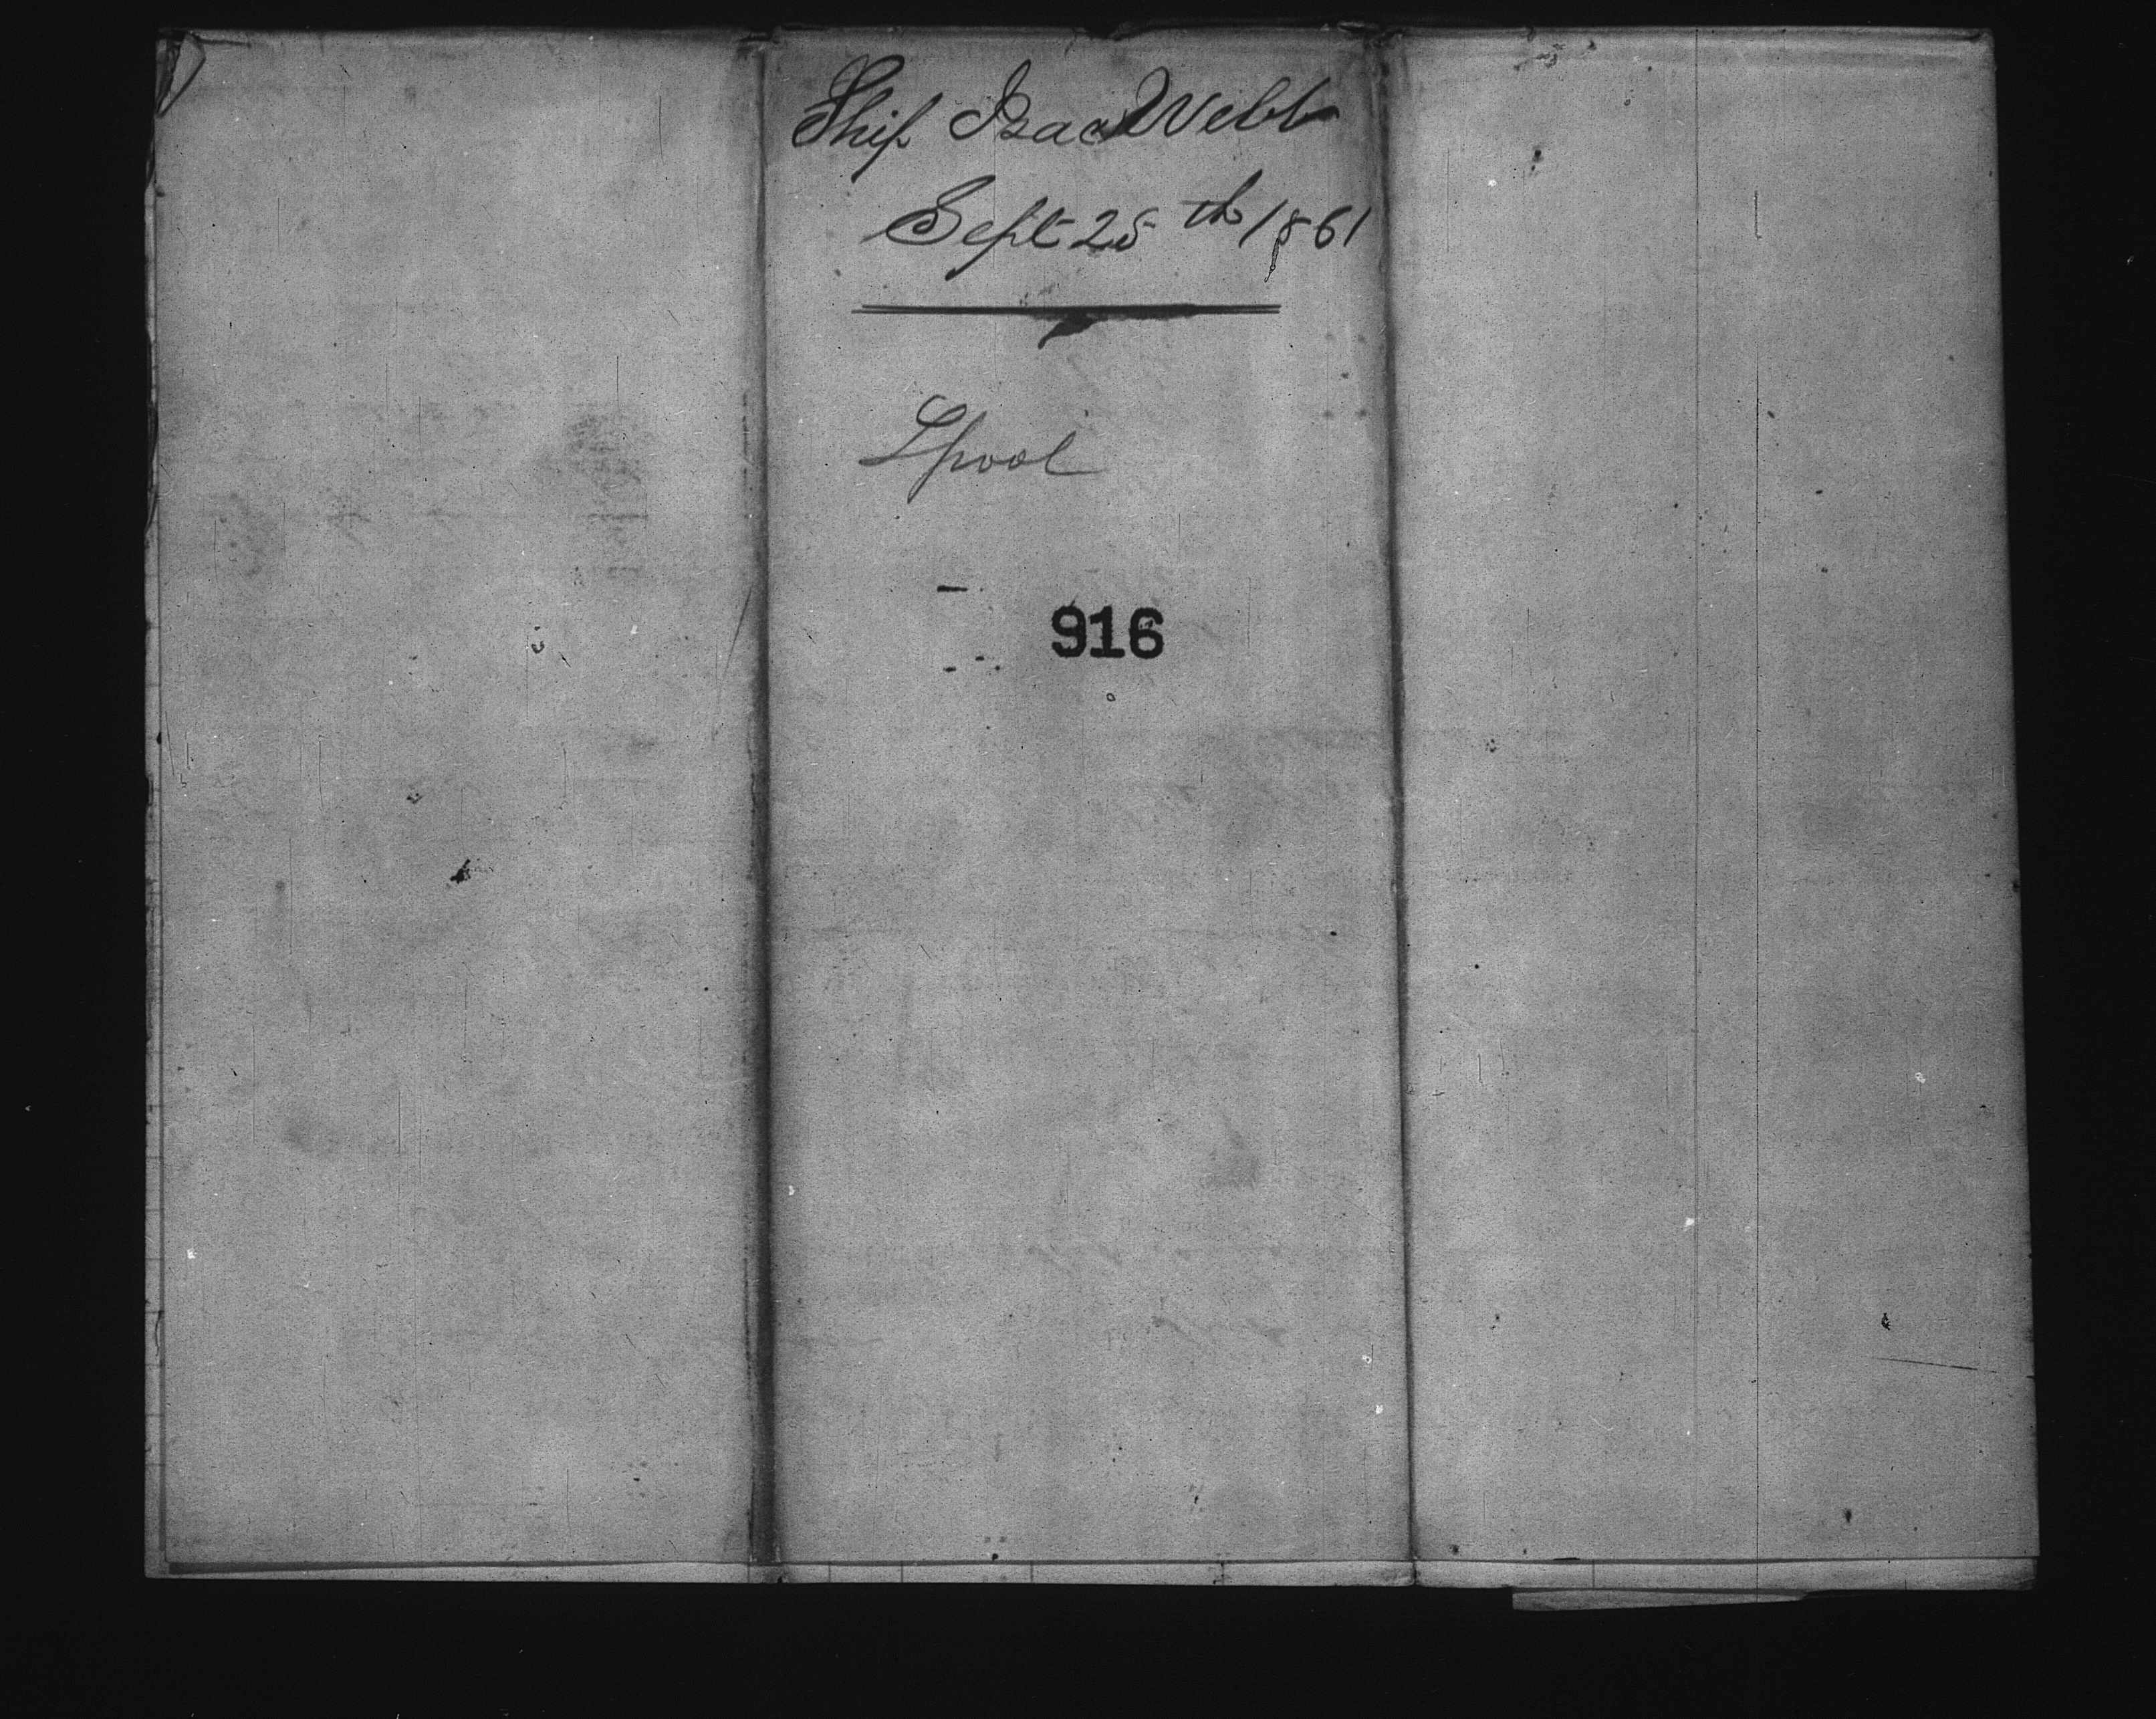 Ship Isaac Webb
Sept 25th 1861
Lpool
916